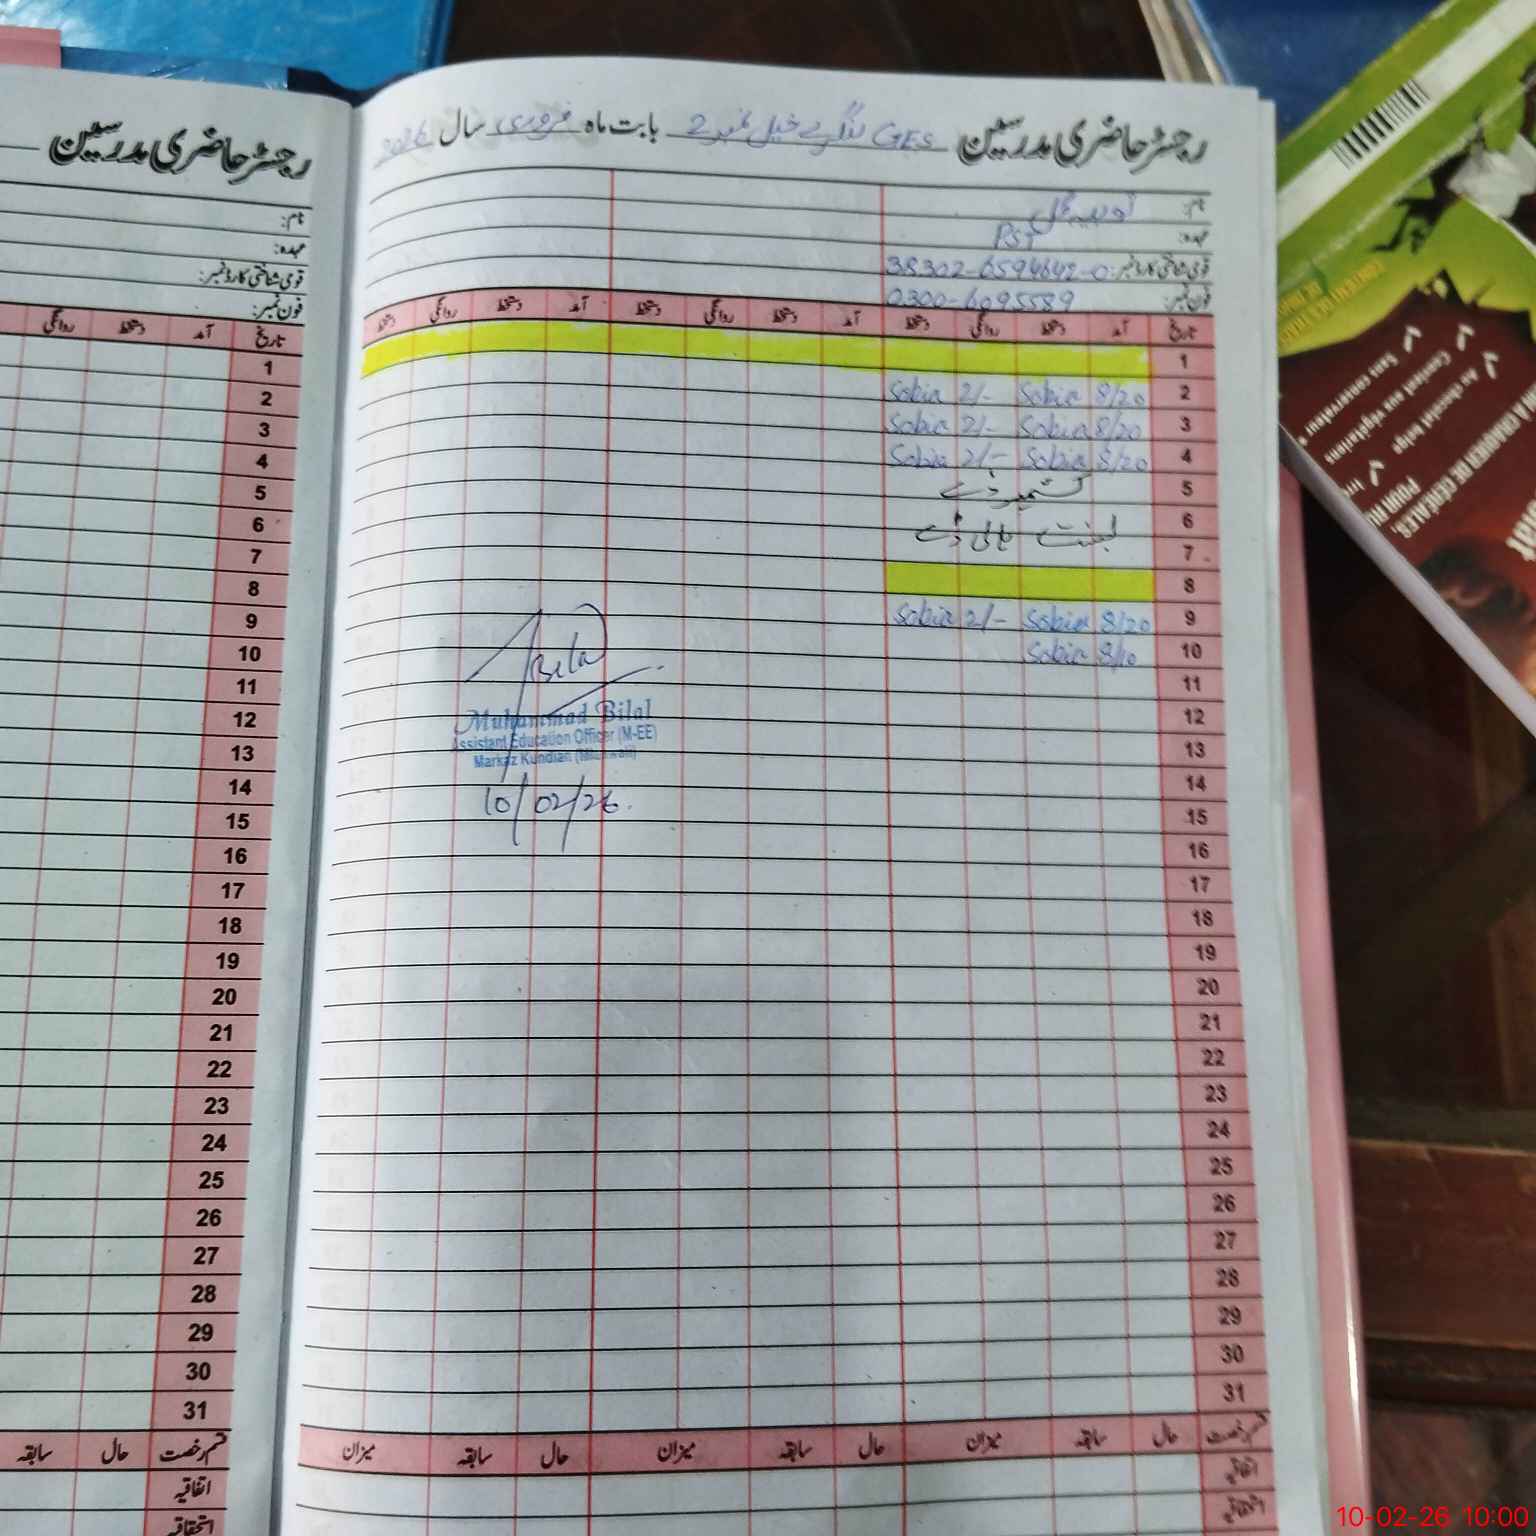 رجسٹر حاضری مدرسین GES خیل نمبر 2 بابت ماہ فروری سال 2026
نام:
عہدہ: PST
قومی شناختی کارڈ نمبر: 38302-6594642-0
فون نمبر: 0300-6095589
تاریخ آمد دستخط روانگی دستخط آمد دستخط روانگی دستخط آمد دستخط روانگی دستخط
1
2 8/20 Sobia 2/- Sobia
3 8/20 Sobia 2/- Sobia
4 8/20 Sobia 2/- Sobia
5 کشمیر ڈے
6 بسنت ہالی ڈے
7
8
9 8/20 Sobia 2/- Sobia
10 8/10 Sobia
11
12
13
14
15
16
17
18
19
20
21
22
23
24
25
26
27
28
29
30
31
قسم رخصت حال سابقہ میزان حال سابقہ میزان حال سابقہ میزان
اتفاقیہ
استحقاقیہ
Bilal
Muhammad Bilal
Assistant Education Officer (M-EE)
Markaz Kundian (Mianwali)
10/02/26.
رجسٹر حاضری مدرسین
نام:
عہدہ:
قومی شناختی کارڈ نمبر:
فون نمبر:
تاریخ آمد دستخط روانگی
1
2
3
4
5
6
7
8
9
10
11
12
13
14
15
16
17
18
19
20
21
22
23
24
25
26
27
28
29
30
31
قسم رخصت حال سابقہ
اتفاقیہ
استحقاقیہ
Sans conservateur
Au chocolat belge
10-02-26 10:00